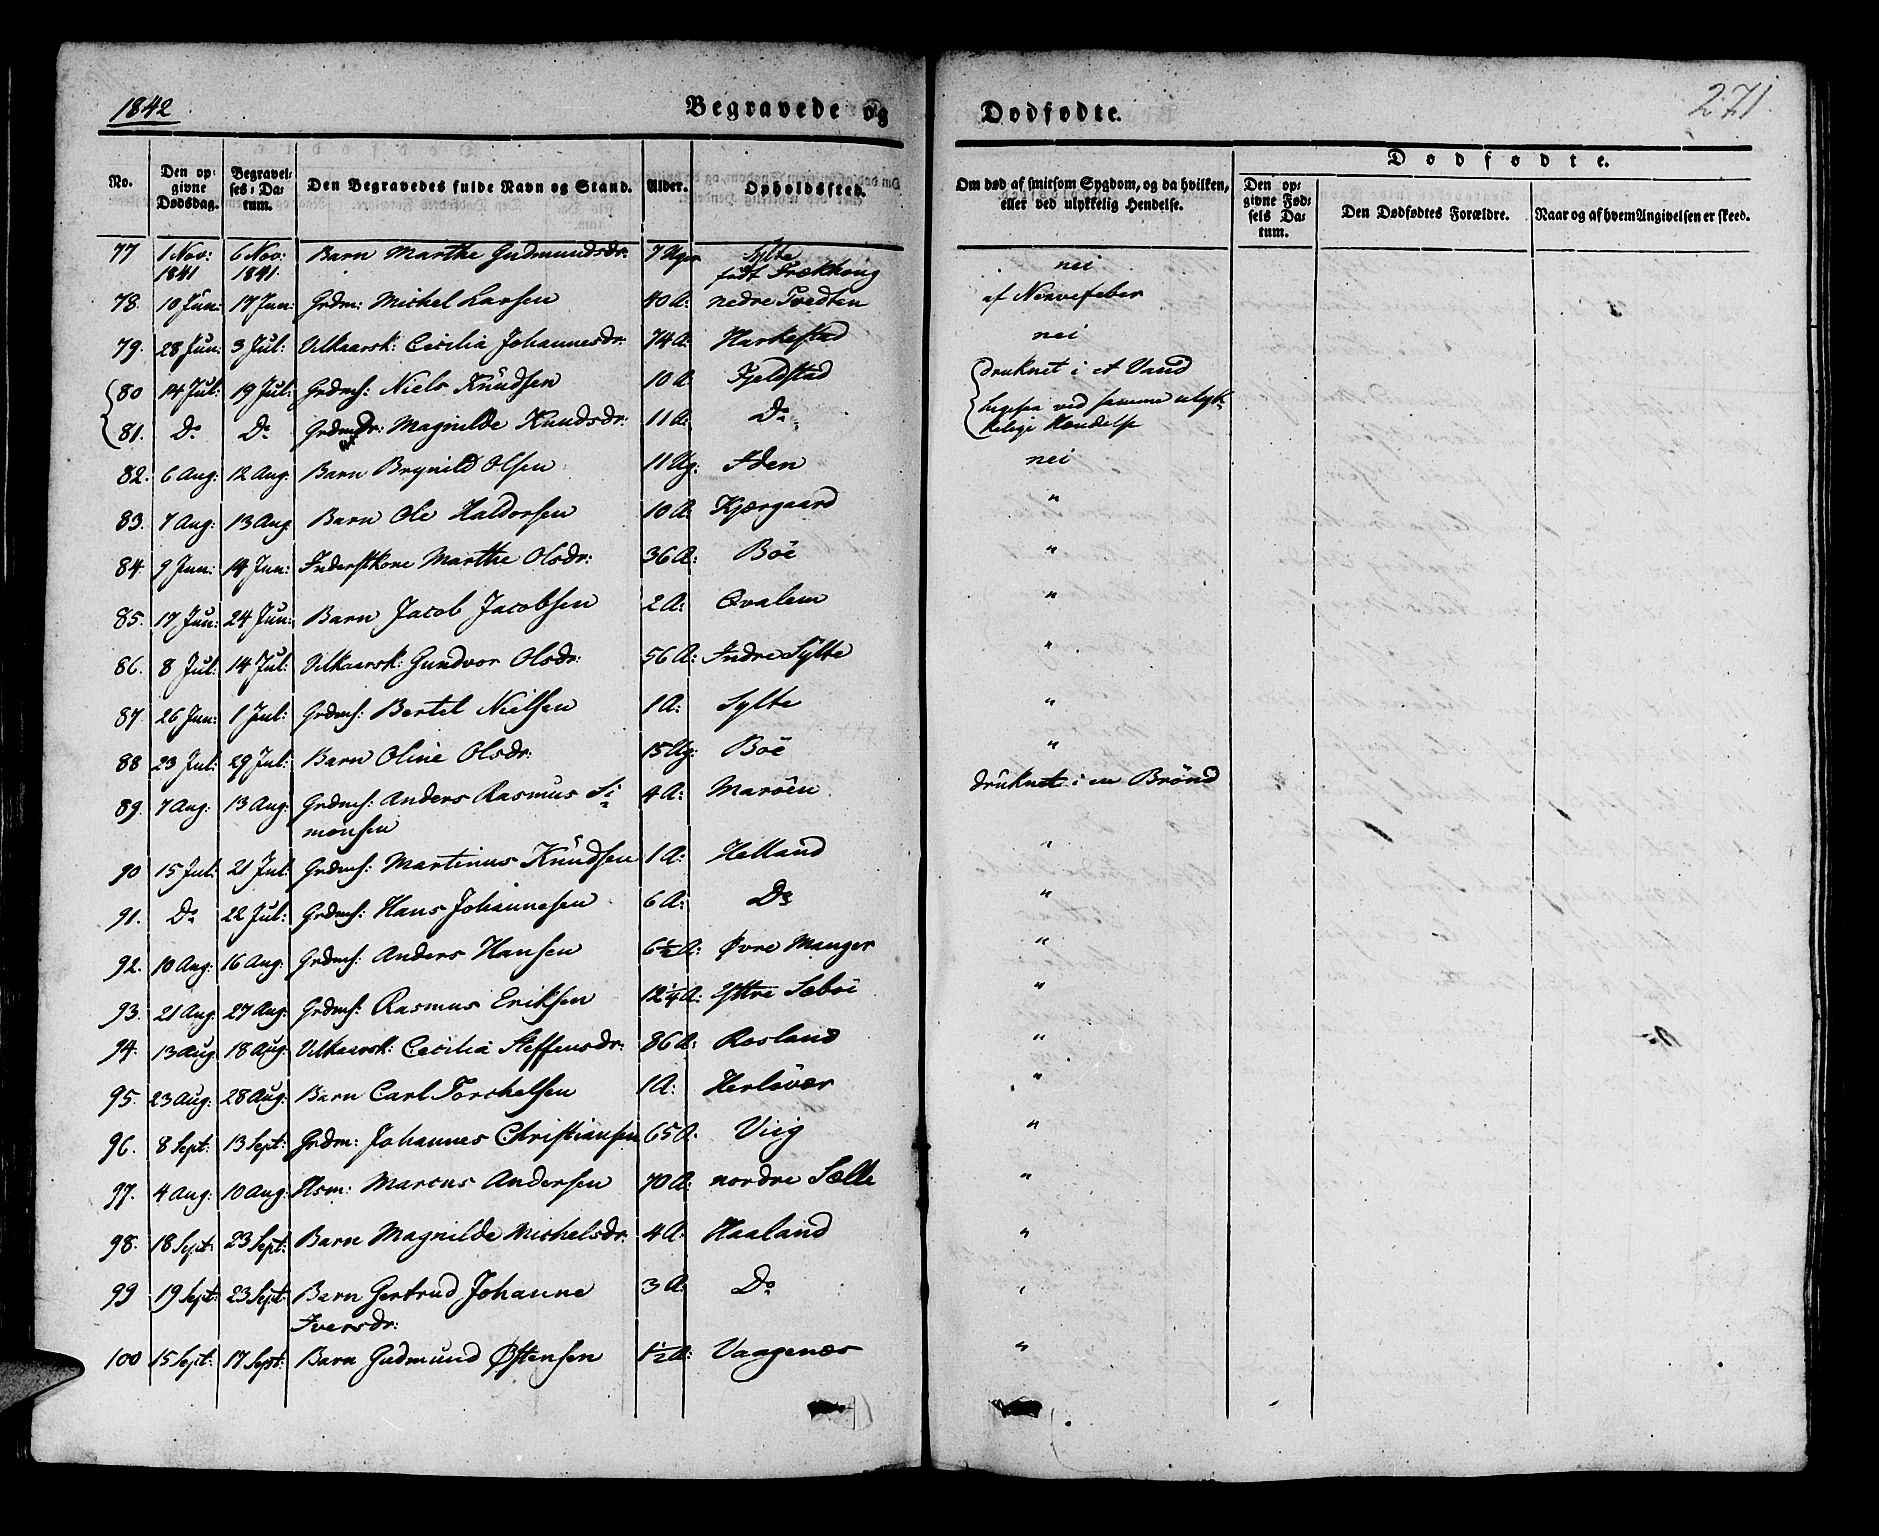 1842
Begravede og
Dødfødte.
271
No.
Den opgivne Dødsdag.
Begravelses-Datum.
Den Begravedes fulde Navn og Stand.
Alder.
Opholdssted.
Om død af smitsom Sygdom, og da hvilken, eller ved ulykkelig Hendelse.
Dødfødte.
Den opgivne Fødsels Datum.
Den Dødfødtes Forældre.
Naar og af hvem Angivelsen er skeed.
77 1 Nov: 1841 6 Nov: 1841 Barn Marthe Gudmundsdr. 7 Uger Sylte født Trækhoug nei
78. 10 Jun: 17 Jun: Grdm: Michel Larsen 40 A: nedre Tvedten af Nervefeber
79. 28 Jun: 3 Jul: Vilkaarsk: Cecilia Johannesdr. 74 A: Harkestad nei
80 14 Jul: 19 Jul: Grdms: Niels Knudsen 10 A Fjeldstad druknet i et Vand
81. Do Do Grdmdr: Magnilde Knudsdr. 11 A: Do ligesaa ved samme ulyk-
kelige Hændelse
82. 6 Aug: 12 Aug: Barn Brynild Olsen 11 Ug: Iden nei
83. 7 Aug: 13 Aug Barn Ole Haldorsen 10 A: Kjærgaard "
84. 9 Jun: 14 Jun: Inderstkone Marthe Olsdr: 36 A: Böe "
85. 17 Jun: 24 Jun: Barn Jacob Jacobsen 2 A: Qvalem "
86. 8 Jul: 14 Jul: Vilkaarsk: Gundvor Olsdr: 56 A: Indre Sylte "
87 26 Jun: 1 Jul: Grdms: Bertel Nielsen 1 A: Sylte "
88 23 Jul: 29 Jul: Barn Oline Olsdr: 15 Ug: Böe "
89. 7 Aug: 13 Aug: Grdms: Anders Rasmus Si- 4 A: Maröen druknet i en Brönd
monsen
90 15 Jul: 21 Jul: Grdms: Martinus Knudsen 1 A: Helland "
91. Do 22 Jul: Grdms: Hans Johannesen 6 A: Do "
92. 10 Aug: 16 Aug: Grdms: Anders Hansen 6½ A: Øvre Manger "
93. 21 Aug. 27 Aug: Grdms: Rasmus Eriksen 12¼ A: Yttre Sæböe "
94. 13 Aug 18 Aug: Vilkaarsk: Cecilia Steffensdr: 86 A: Rosland "
95. 23 Aug: 28 Aug: Barn Carl Torchelsen 1 A: Herlövær "
96. 8 Sept: 13 Sept: Grdm: Johannes Christiansen 65 A: Viig "
97. 4 Aug: 10 Aug: Hsm: Marcus Andersen 70 A: nordre Sælle "
98. 18 Sept: 23 Sept: Barn Magnilde Michelsdr. 4 A: Haaland "
99 19 Sept: 23 Sept: Barn Gertrud Johanne 3 A: Do "
Iversdr:
100 15 Sept: 17 Sept: Barn Gudmund Østensen 1½ A: Vaagenæs "